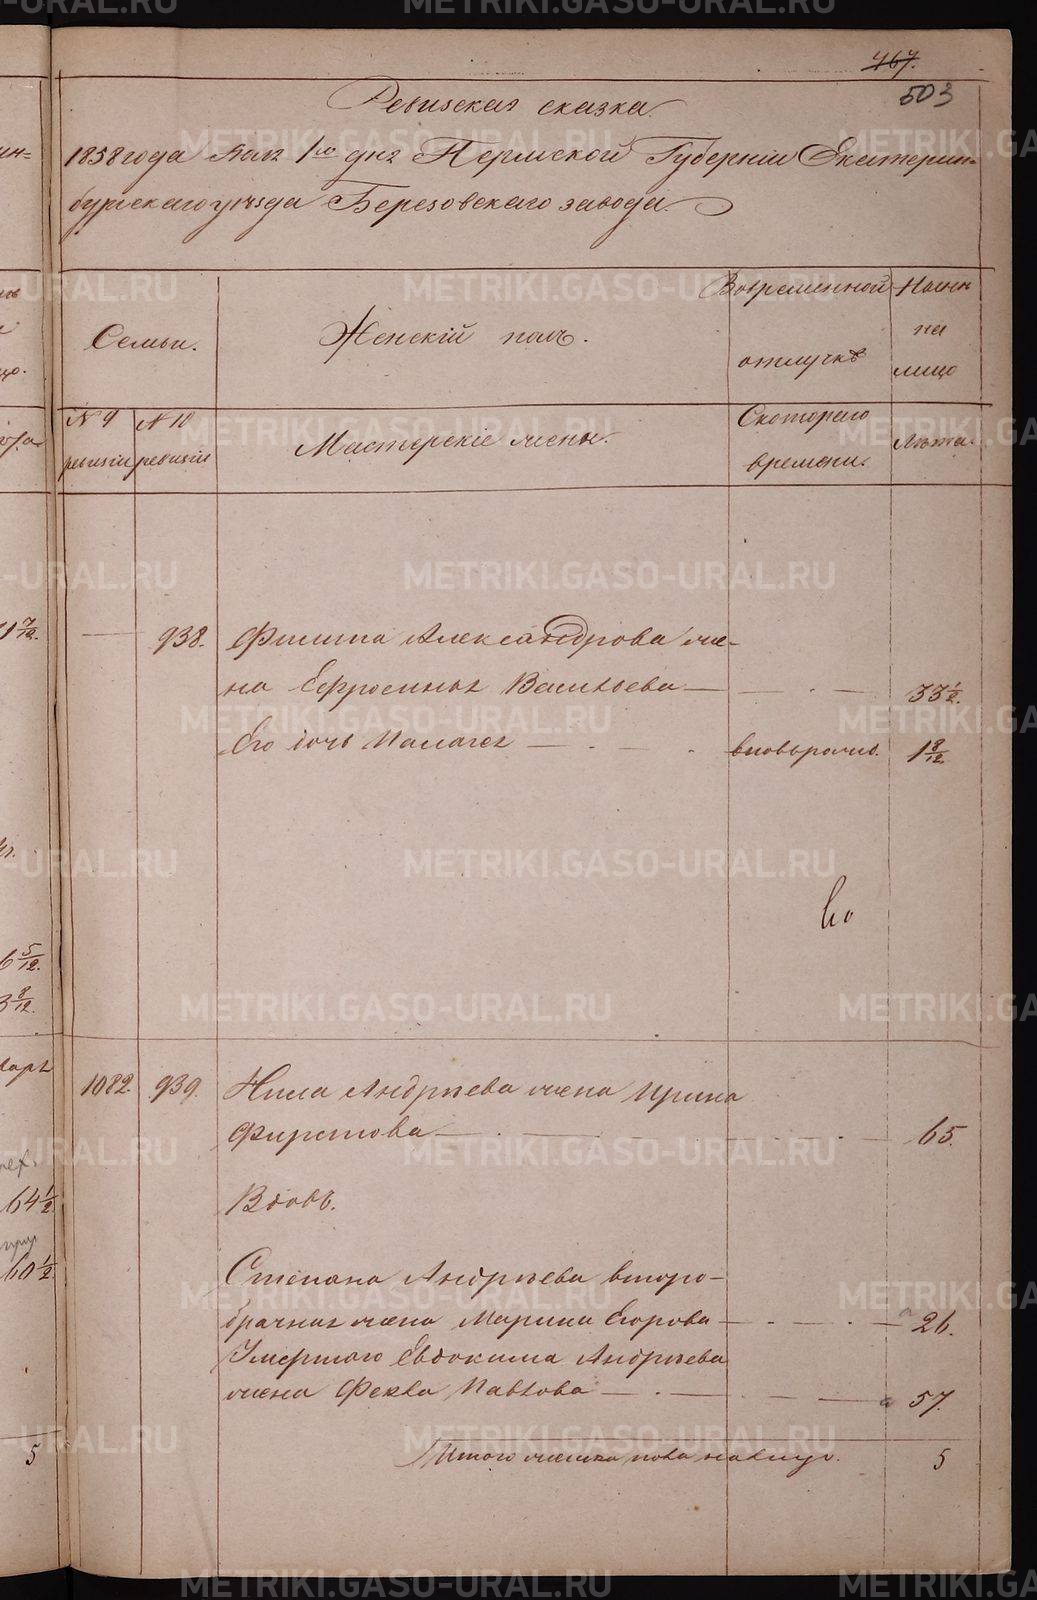 467.
503
Ревизская сказка.
1858 года Мая 1го дня Пермской Губерніи Екатерин-
бургскаго уѣзда Березовскаго завода.
Семьи.
Женскій полъ.
Вовременной
отлучкѣ
Ныне
на
лицо
№ 9
ревизіи
№ 10
ревизіи
Мастерскіе жены.
Скотораго
времени.
Лѣта.
938. Филипа Александрова же-
на Ефросинья Васильева — 33 1/2.
Его дочь Палагея — вновьрожд. 1 8/12.
1082. 939. Нила Андрѣева жена Ирина
Фирстова — 65.
Вдовъ.
Степана Андрѣева второ-
брачная жена Марина Егорова — 26.
Умершаго Евдокима Андрѣева
жена Фекла Павлова — 57.
Итого женска пола налицо. 5
1 7/12.
6 5/12.
3 8/12.
64 1/2
60 1/2
5
METRIKI.GASO-URAL.RU